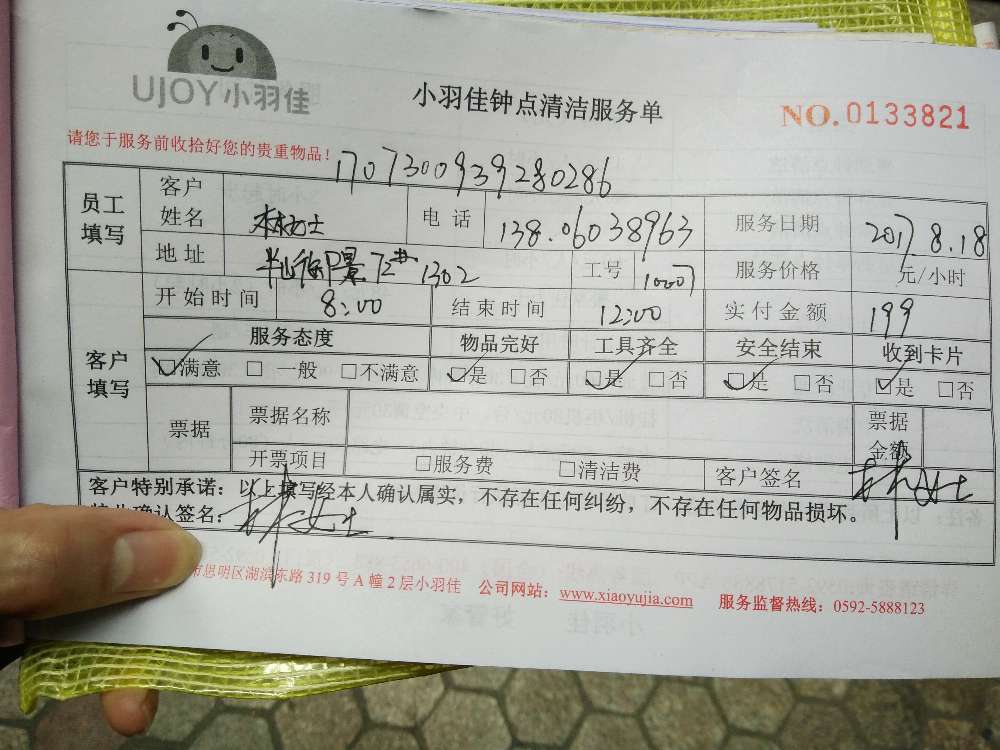 UJOY小羽佳
小羽佳钟点清洁服务单
NO.0133821
请您于服务前收拾好您的贵重物品!
170730093928 0286
员工填写 客户姓名 林女士 电话 138.06038963 服务日期 2017.8.18
地址 72# 1302 工号 10007 服务价格 元/小时
开始时间 8:00 结束时间 12:00 实付金额 199
客户填写 服务态度 物品完好 工具齐全 安全结束 收到卡片
☑满意 □一般 □不满意 ☑是 □否 ☑是 □否 ☑是 □否 ☑是 □否
票据 票据名称 票据金额
开票项目 □服务费 □清洁费 客户签名 林女士
客户特别承诺：以上填写经本人确认属实，不存在任何纠纷，不存在任何物品损坏。
确认签名：林女士
市思明区湖滨东路319号A幢2层小羽佳 公司网站：www.xiaoyujia.com 服务监督热线：0592-5888123